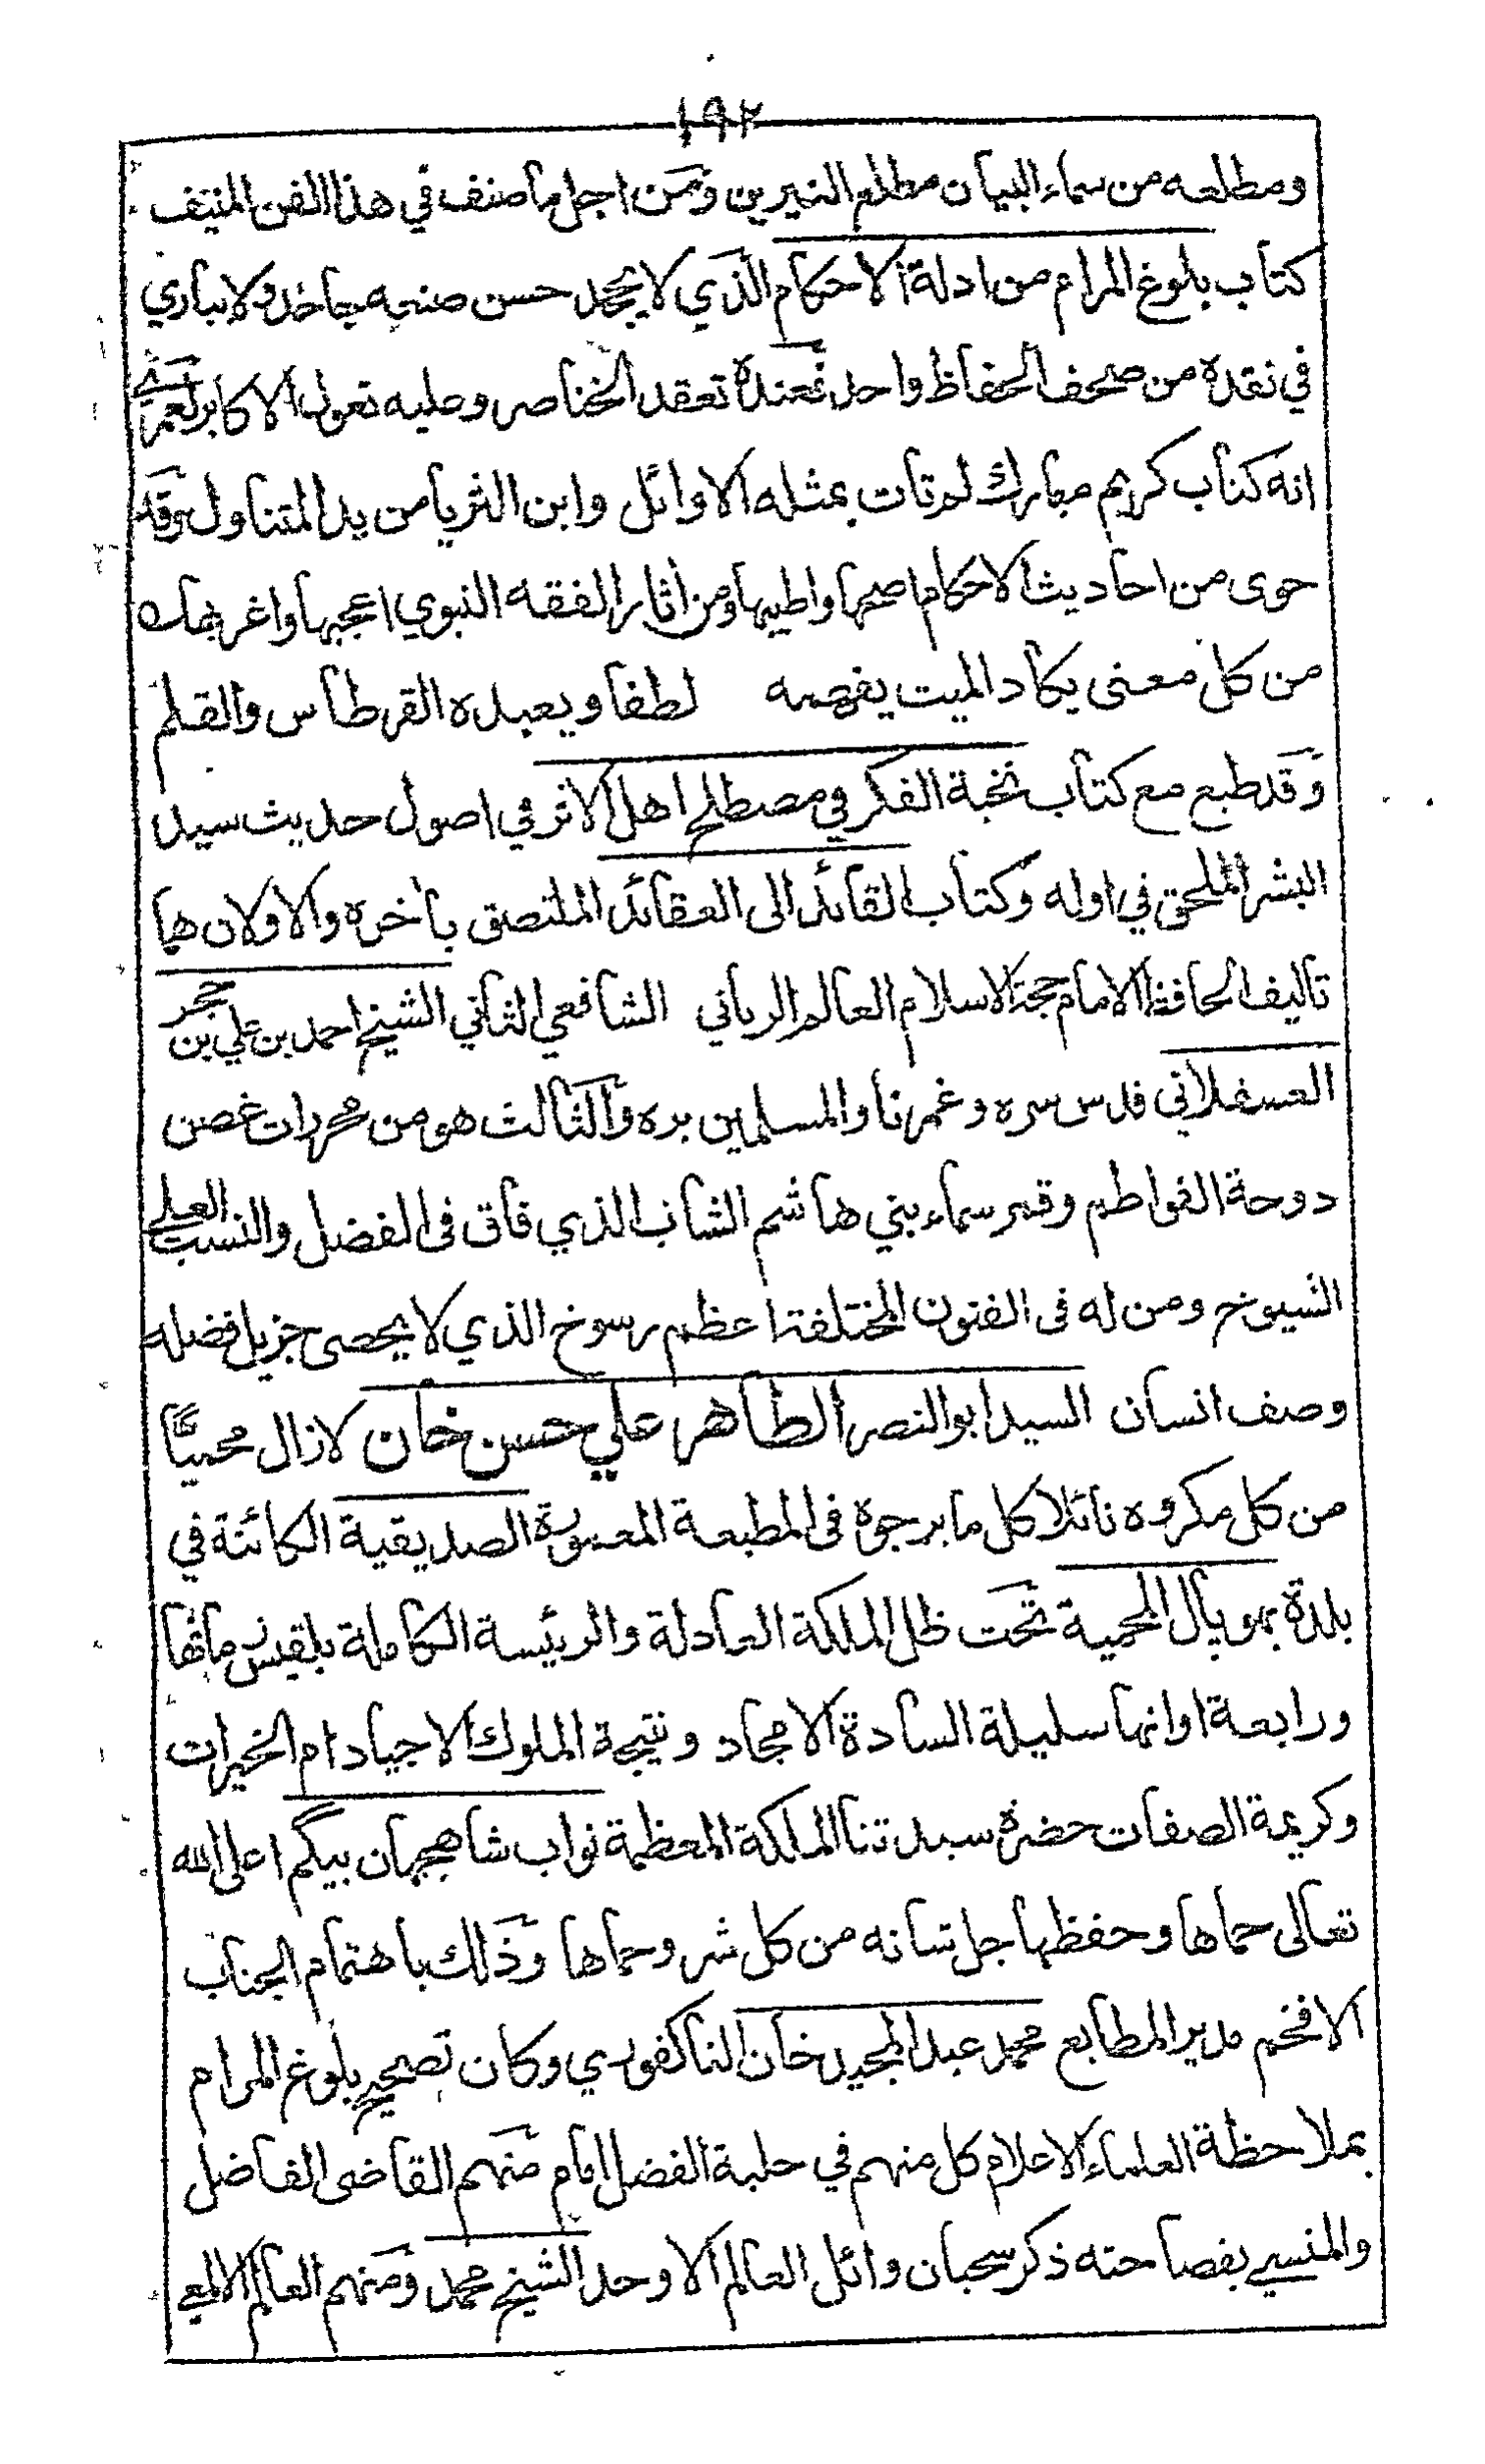 ١٩٢
ومطلعه من سماء البيان مطلع النيرين ومن اجل ما صنف في هذا الفن المنيف
كتاب بلوغ المرام من ادلة الاحكام الذي لا يجحد حسن صنعه جاحد ولا يباري
في نقده من صحف الحفاظ واحد فعنده تعقد الخناصر وعليه تعول الاكابر لعمري
انه كتاب كريم مبارك لم تات بمثله الاوائل واين الثريا من يد المتناول وقد
حوى من احاديث الاحكام اصحها واطيبها ومن آثار الفقه النبوي اعجبها واغربها
من كل معنى يكاد الميت يفهمه لطفا ويعبده القرطاس والقلم
وقد طبع مع كتاب نخبة الفكر في مصطلح اهل الاثر في اصول حديث سيد
البشر الملحق في اوله وكتاب القائد الى العقائد الملتصق بآخره والاولان هما
تاليف الحافظ الامام حجة الاسلام العالم الرباني الشافعي الثاني الشيخ احمد بن علي بن حجر
العسقلاني قدس سره وغمرنا والمسلمين بره والثالث هو من محررات غصن
دوحة الفواطم وقمر سماء بني هاشم الشاب الذي فاق فى الفضل والنسب العلي
الشيوخ ومن له فى الفنون المختلفة اعظم رسوخ الذي لا يحصى جزيل فضله
وصف انسان السيد ابو النصر الطاهر علي حسن خان لا زال محميًا
من كل مكروه نائلا كل ما يرجوه فى المطبعة المعمورة الصديقية الكائنة في
بلدة بهوپال المحمية تحت ظل الملكة العادلة والرئيسة الكاملة بلقيس زمانها
ورابعة اوانها سليلة السادة الامجاد ونتيجة الملوك الاجياد ام الخيرات
وكريمة الصفات حضرة سيدتنا المالكة المعظمة نواب شاهجهان بيگم اعلى الله
تعالى حماها وحفظها جل شانه من كل شر وحماها وذلك باهتمام الجناب
الافخم مدير المطابع محمد عبد المجيد خان الناكفوري وكان تصحيح بلوغ المرام
بملاحظة العلماء الاعلام كل منهم في حلبة الفضل امام منهم القاضى الفاضل
والمنسي بفصاحته ذكر سحبان وائل العالم الاوحد الشيخ محمد ومنهم العالم الالمعي